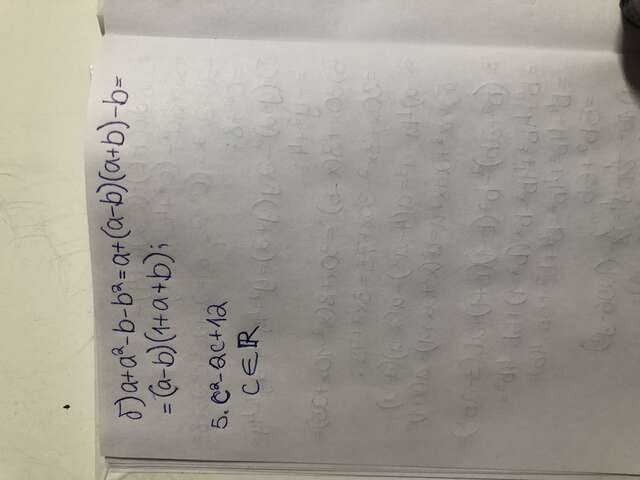 б) a+a²-b-b²=a+(a-b)(a+b)-b=
=(a-b)(1+a+b);
5. c²-2c+12
c∈ℝ